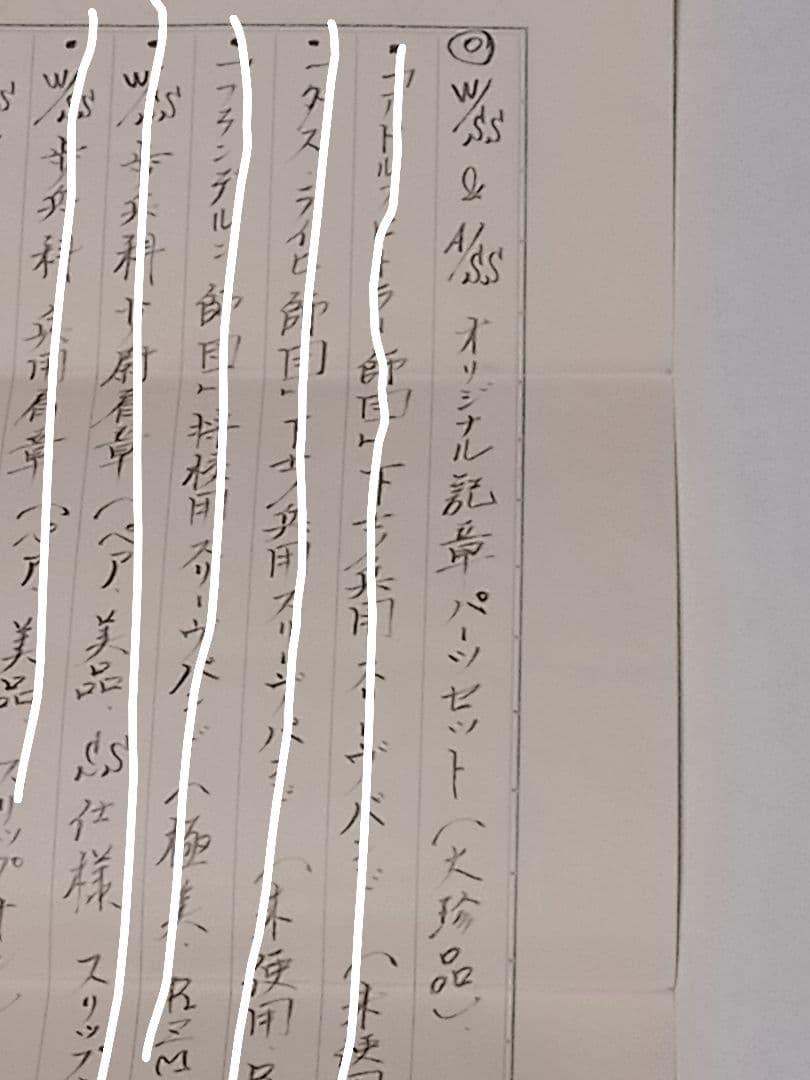 ◎ W/SS & A/SS オリジナル記章 パーツセット (大珍品)
・「アドルフヒトラー師団」下士/兵用 スリーブバンド (未使用
・「ダス・ライヒ師団」下士/兵用 スリーブバンド (未使用 R
・「フランデルン師団」将校用 スリーヴバンド (極美. RZM
・W/SS 歩兵科 尉肩章 (ペア. 美品. SS仕様 スリップ
・W/SS 歩兵科 兵用肩章 (ペア. 美品. スリップオン)